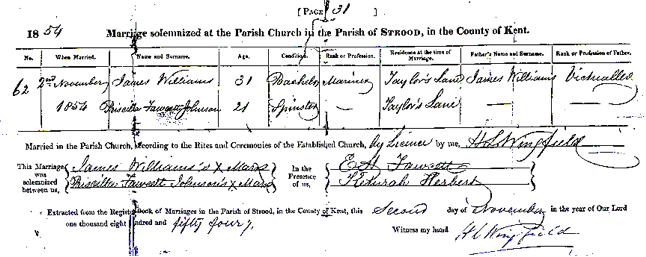 [PAGE 31
1854 Marriage solemnized at the Parish Church in the Parish of STROOD, in the County of Kent.
No. When Married. Name and Surname. Age. Condition. Rank or Profession. Residence at the time of Marriage. Father's Name and Surname. Rank or Profession of Father.
62 2nd November James Williams 31 Bachelor Mariner Taylor's Lane James Williams Victualler
1854 Priscilla Fawcett Johnson 21 Spinster — Taylor's Lane — —
Married in the Parish Church, according to the Rites and Ceremonies of the Established Church, by Licence by me, H L Wingfield
This Marriage was solemnized between us, James Williams's X Mark In the Presence of us, E A Fawcett
Priscilla Fawcett Johnson's X Mark Keturah Herbert
Extracted from the Register Book of Marriages in the Parish of STROOD, in the County of Kent, this Second day of November in the year of Our Lord
one thousand eight hundred and fifty four. Witness my hand H L Wingfield